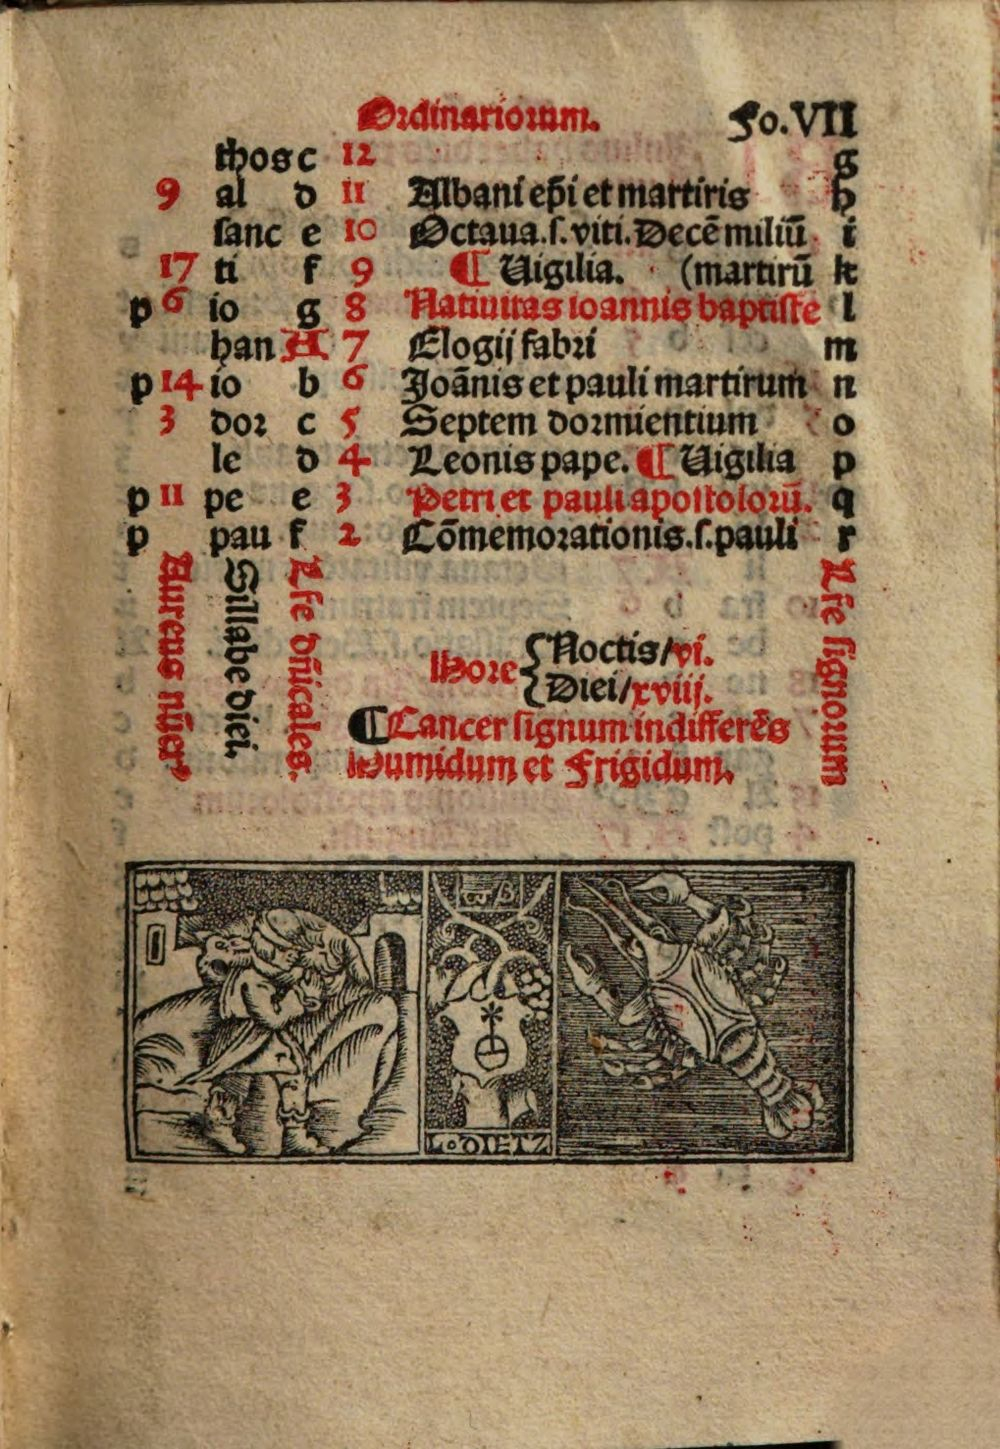 Ordinariorum. Fo.VII
thos c 12 g
9 al d 11 Albani ep̄i et martiris h
sanc e 10 Octaua.s.viti.Decē miliū i
17 ti f 9 ¶ Uigilia. (martirū k
p 6 io g 8 Natiuitas ioannis baptiste l
han A 7 Elogij fabri m
p 14 io b 6 Joānis et pauli martirum n
3 dor c 5 Septem dormientium o
le d 4 Leonis pape. ¶ Uigilia p
p 11 pe e 3 Petri et pauli apostolorū. q
p pau f 2 Cōmemorationis.s.pauli r
Aureus nūer9
Sillabe diei.
Lr̄e dn̄icales.
Lr̄e signorum
Hore { Noctis/vi.
Diei/xviij.
¶ Cancer signum indifferēs
Humidum et Frigidum.
L·DIETZ